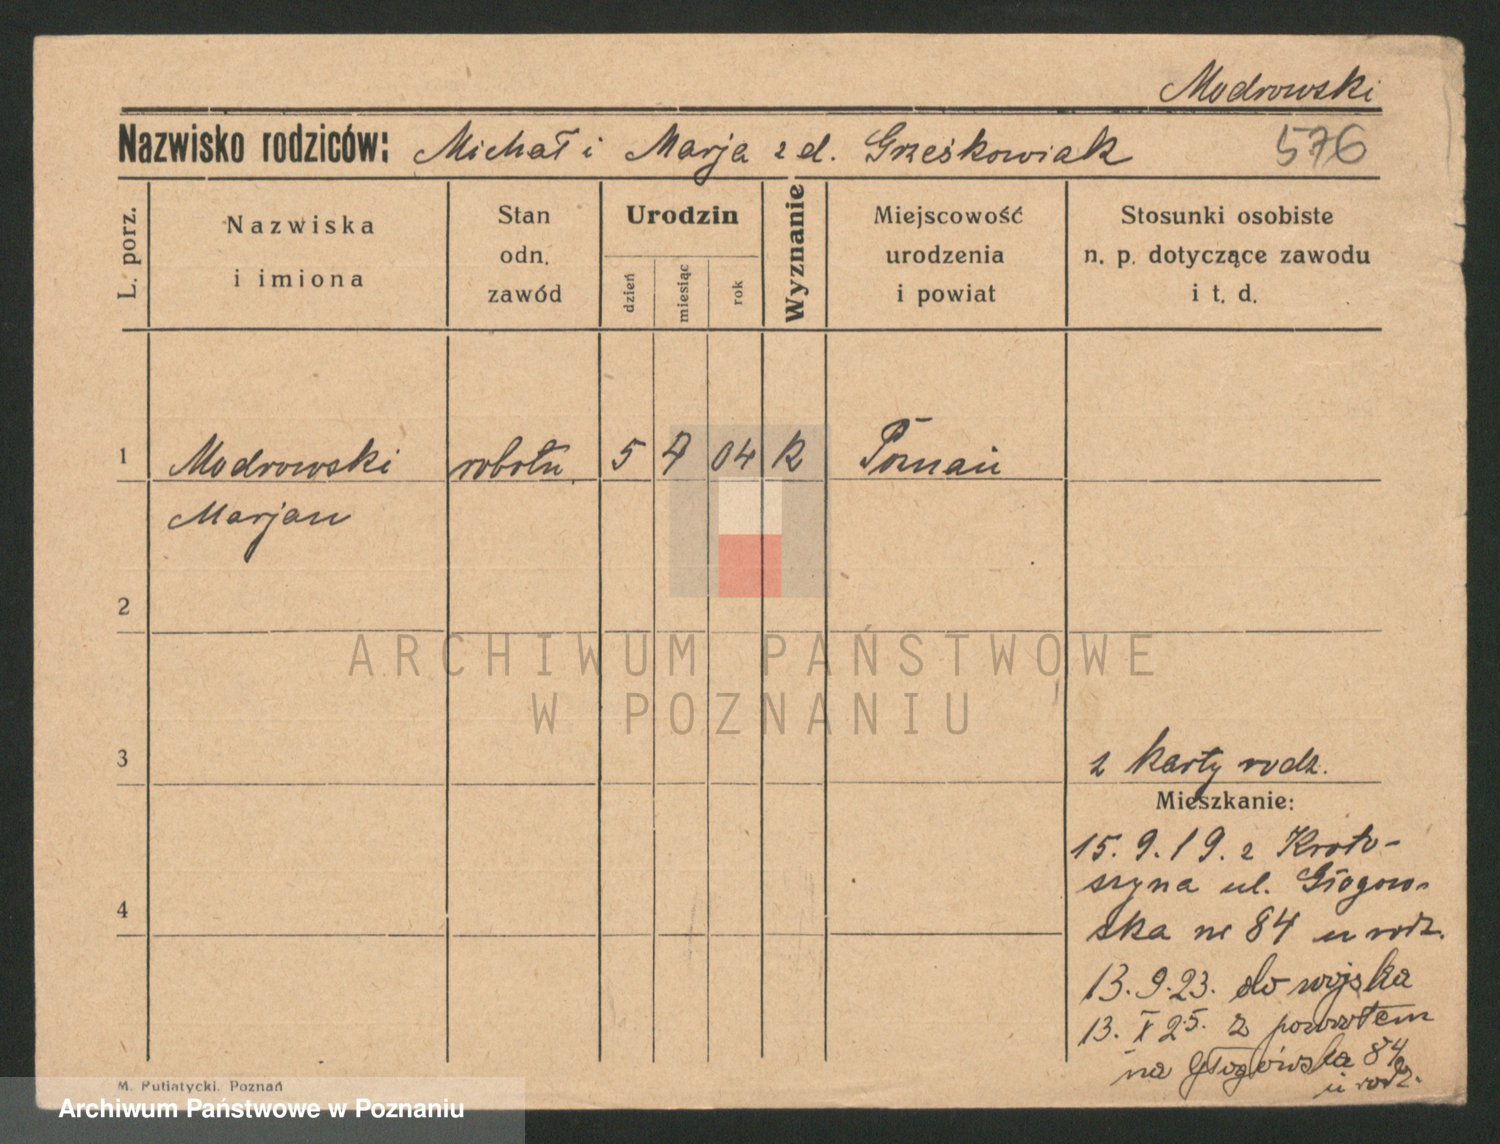 Modrowski
Nazwisko rodziców: Michał i Marja z d. Grześkowiak 576
L. porz.
Nazwiska
i imiona
Stan
odn.
zawód
Urodzin
dzień
miesiąc
rok
Wyznanie
Miejscowość
urodzenia
i powiat
Stosunki osobiste
n. p. dotyczące zawodu
i t. d.
1 Modrowski robotn. 5 7 04 k Poznań
Marjan
2
ARCHIWUM PAŃSTWOWE
W POZNANIU
3
z karty rodz.
Mieszkanie:
15.9.19. z Kroto-
szyna ul. Głogow-
4
ska nr 84 u rodz.
13.9.23. do wojska
13. X 25. z powrotem
na Głogówska 84
u rodz.
M. Putiatycki, Poznań
Archiwum Państwowe w Poznaniu